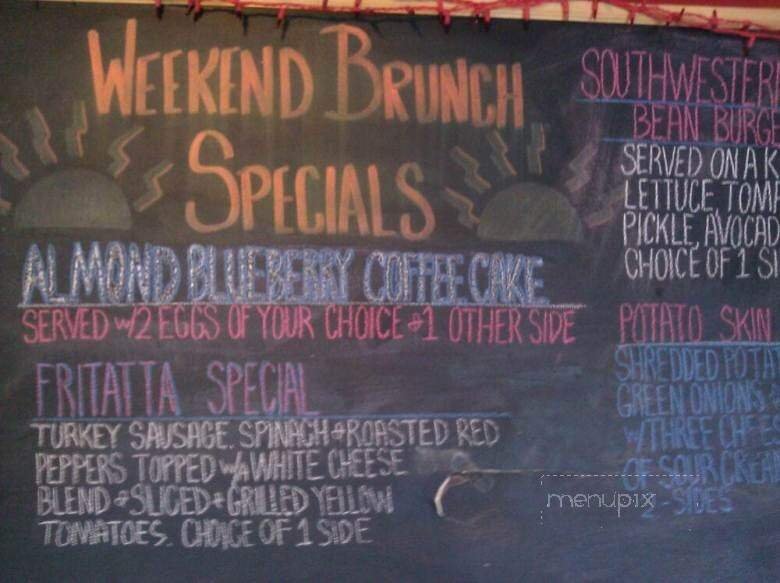 WEEKEND BRUNCH
SPECIALS
ALMOND BLUEBERRY COFFEE CAKE
SERVED w/2 EGGS OF YOUR CHOICE + 1 OTHER SIDE
FRITATTA SPECIAL
TURKEY SAUSAGE, SPINACH + ROASTED RED
PEPPERS TOPPED w/A WHITE CHEESE
BLEND + SLICED + GRILLED YELLOW
TOMATOES. CHOICE OF 1 SIDE
SOUTHWESTER
BEAN BURGE
SERVED ON A K
LETTUCE, TOM
PICKLE, AVOCAD
CHOICE OF 1 SI
POTATO SKIN
SHREDDED POTA
GREEN ONIONS
w/THREE CHEE
OF SOUR CREA
2 - SIDES
menupix